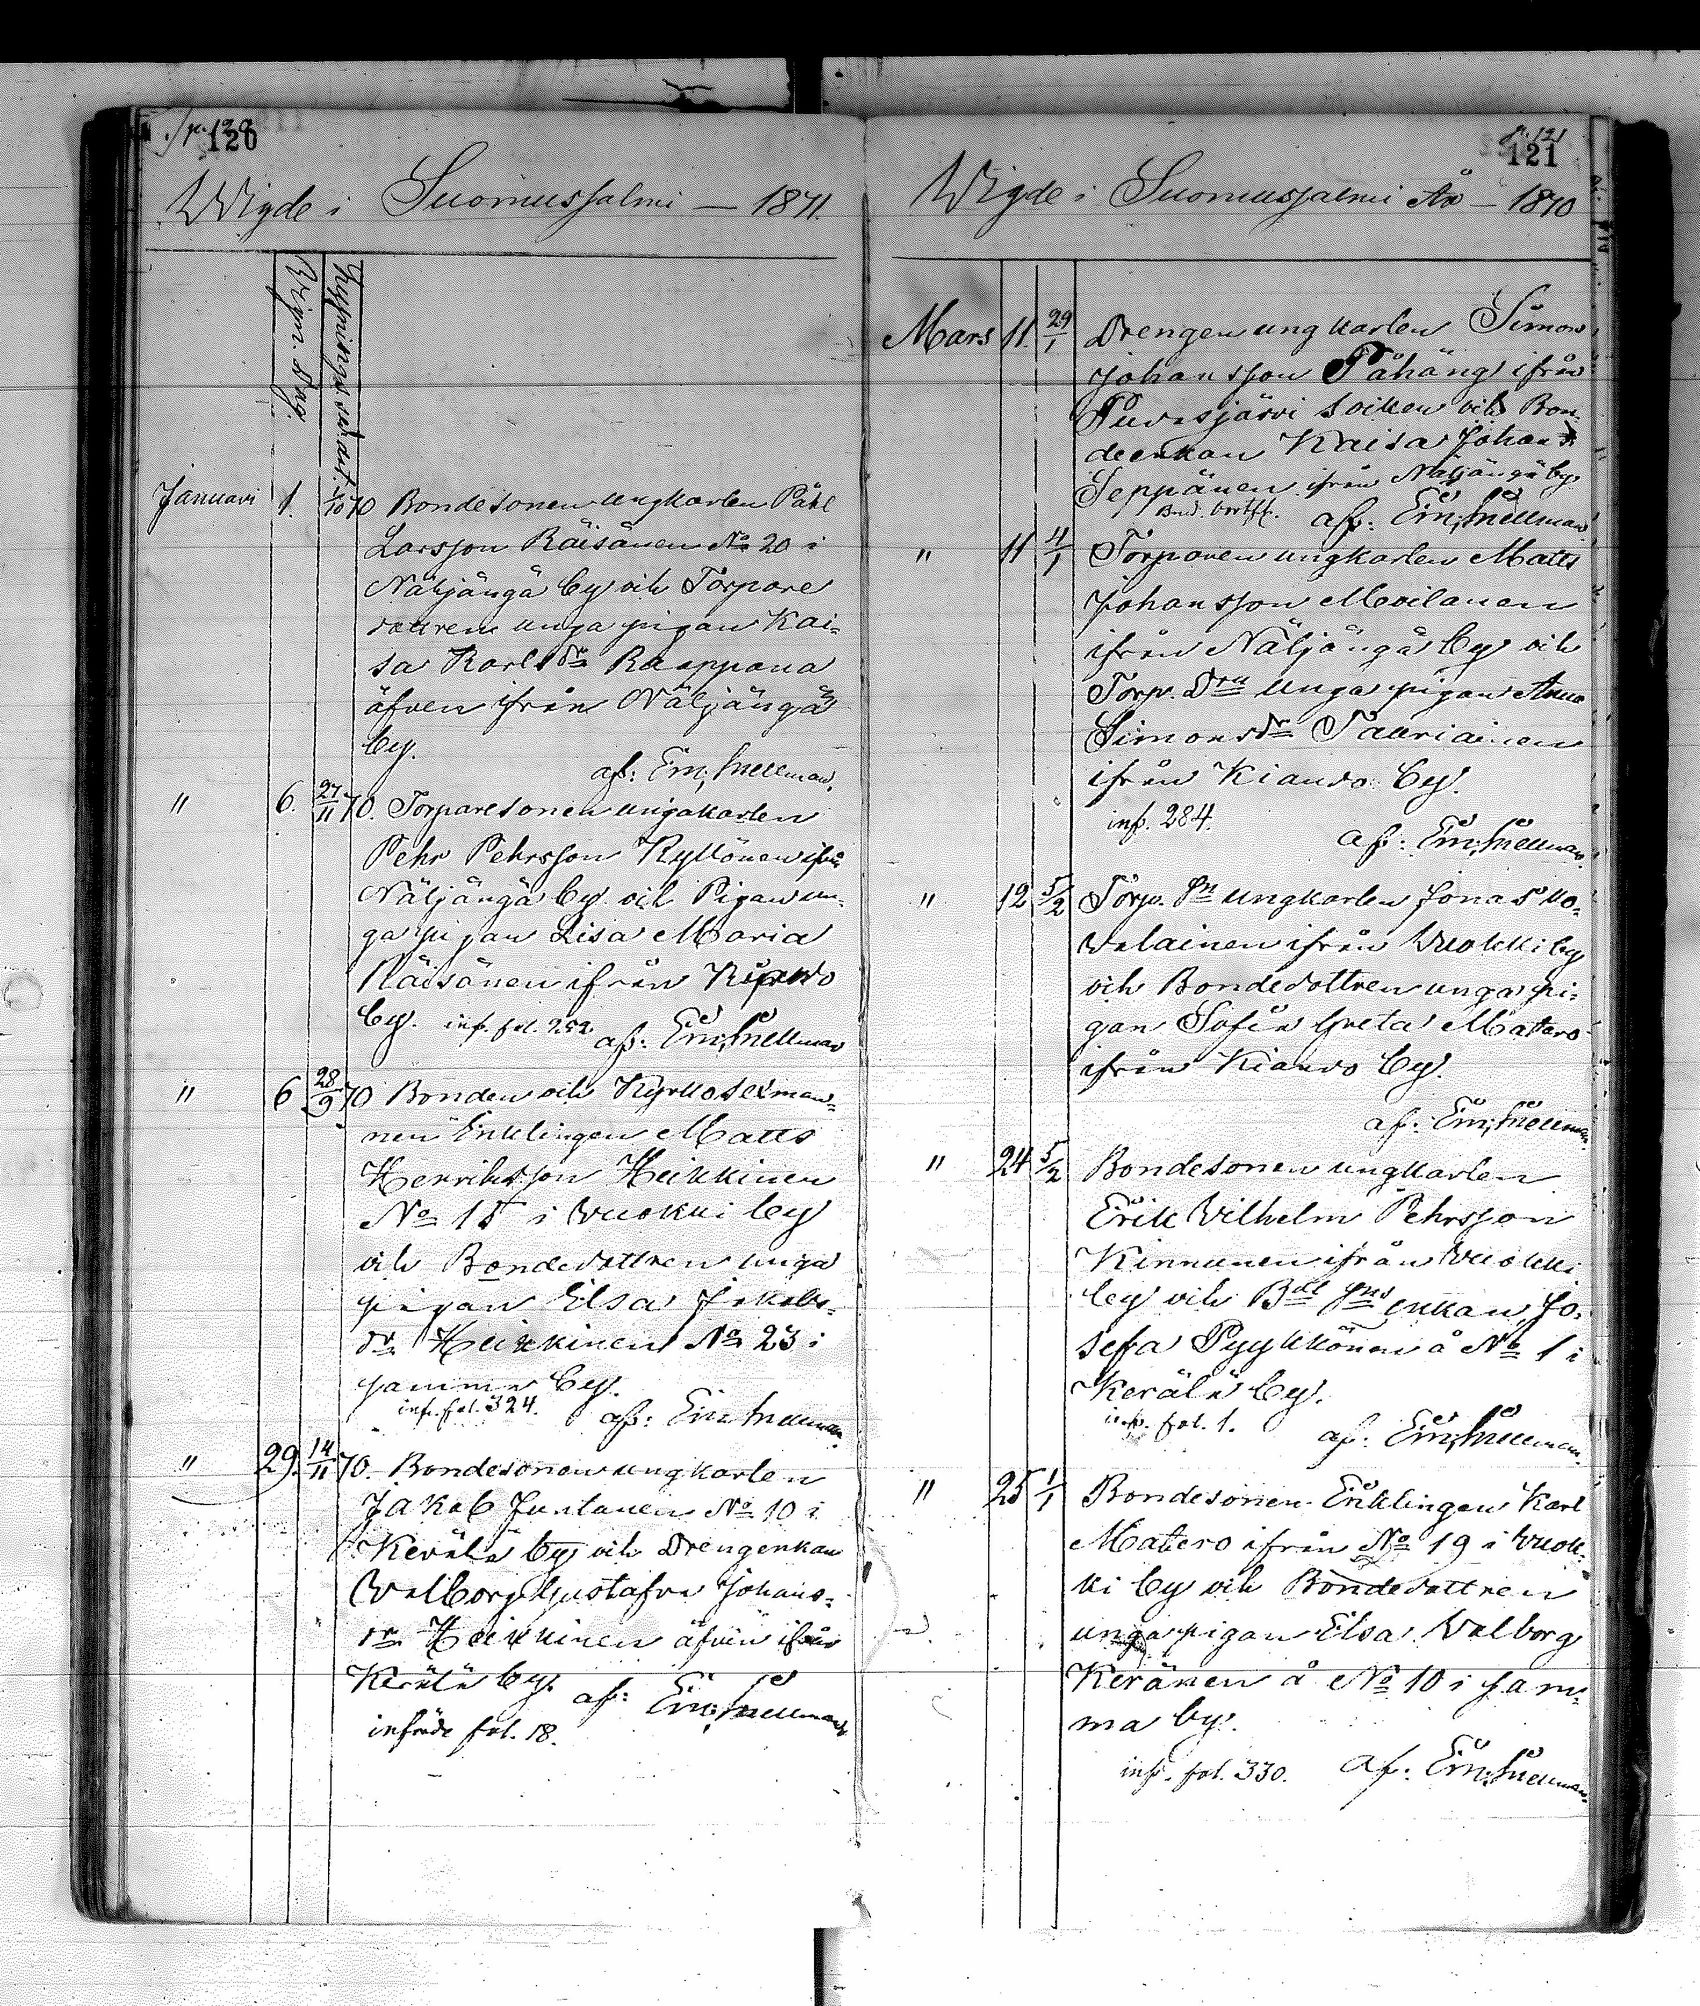 120
Wigde i Suomussalmi — 1871.
Vign. dag.
Januari 1. 1/10 70 Bondesonen ungkarlen Påhl
Larsson Räisänen No 20 i
Näljängä by och Torpare
dottren unga pigan Kai=
sa Karlsdr Rappana
äfven ifrån Näljängä
by.
af: Em; Snellman.
" 6. 27/11 70. Torparesonen ungakarlen
Pehr Pehrsson Kyllönen ifrån
Näljängä by och Pigan un=
ga pigan Lisa Maria
Räisänen ifrån Kiando
by. inf. fol. 252. af: Em; Snellman
" 6 28/9 70 Bonden och Kyrkosexman=
nen Enklingen Matts
Henriksson Heikkinen
No 15 i Vuokki by
och Bondedottren unga
pigan Elsa Jakobs=
dr. Heikkinen No 23 i
samma by.
inf. fol. 324. af: Em Snellman.
" 29. 14/11 70. Bondesonen ungkarlen
Jakob Juntunen No 10 i
Kerälä by och Drengenkan
Valborg Gustafva Johans=
dr. Heikkinen äfven ifrån
Kerälä by. af: Em; Snellman
införde fol. 18.
p. 121
121
Wigde i Suomussalmi År — 1870
Mars 11. 29/1 Drengen ungkarlen Simon
Johansson Påhäng ifrån
Pudasjärvi socken och Bon=
deenkan Kaisa Johansdr
Seppänen ifrån Näljängä by.
af: Em; Snellman
" 11 4/1 Torparen ungkarlen Matts
Johansson Moilanen
ifrån Näljängä by och
Torp. Dru unga pigan Anna
Simonsdr Tauriainen
ifrån Kiando by.
inf. 284.
af: Em; Snellman.
" 12 5/2 Torp. sn ungkarlen Jonas Ko=
valainen ifrån Vuokki by
och Bondedottren unga pi=
gan Sofia Greta Matero
ifrån Kiando by.
af: Em; Snellman
" 24 5/2 Bondesonen ungkarlen
Erik Vilhelm Pehrsson
Kinnunen ifrån Vuokki
by och Bde sns enkan Jo=
sefa Pyykkönen å No 1 i
Kerälä by.
inf. fol. 1. af: Em; Snellman.
" 25 1/1 Bondesonen Enklingen Karl
Matero ifrån No 19 i Vuok=
ki by och Bondedottren
unga pigan Elsa Valborg
Keränen å No 10 i sam=
ma by.
inf. fol. 330. af: Em; Snellman.